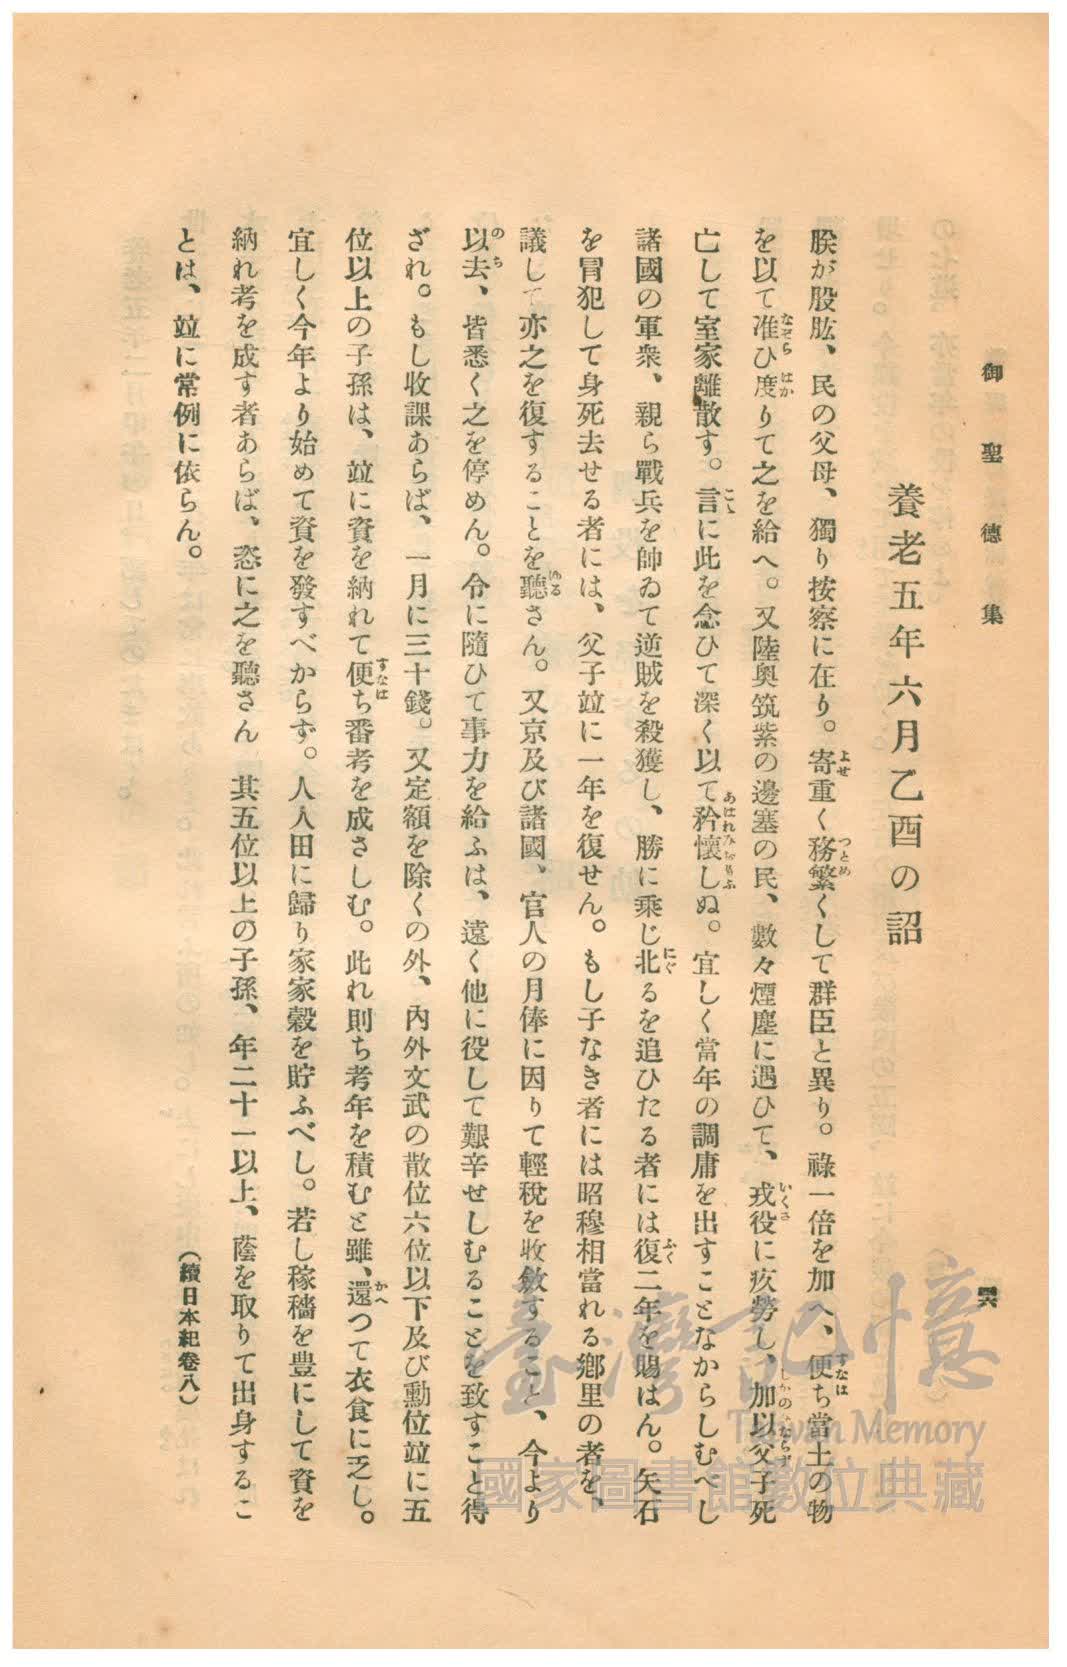 御聖德集
四六
養老五年六月乙酉の詔
朕が股肱、民の父母、獨り按察に在り。寄重く務繁くして群臣と異り。祿一倍を加へ、便ち當土の物
を以て准ひ度りて之を給へ。又陸奧筑紫の邊塞の民、數々煙塵に遇ひて、戎役に疚勞し、加以父子死
亡して室家離散す。言に此を念ひて深く以て矜懷しぬ。宜しく當年の調庸を出すことなからしむべし
諸國の軍衆、親ら戰兵を帥ゐて逆賊を殺獲し、勝に乘じ北るを追ひたる者には復二年を賜はん。矢石
を冒犯して身死去せる者には、父子竝に一年を復せん。もし子なき者には昭穆相當れる鄕里の者を、
議して亦之を復することを聽さん。又京及び諸國、官人の月俸に因りて輕稅を收斂すること、今より
以去、皆悉く之を停めん。令に隨ひて事力を給ふは、遠く他に役して艱辛せしむることを致すこと得
ざれ。もし收課あらば、一月に三十錢。又定額を除くの外、內外文武の散位六位以下及び勳位竝に五
位以上の子孫は、竝に資を納れて便ち番考を成さしむ。此れ則ち考年を積むと雖、還つて衣食に乏し。
宜しく今年より始めて資を發すべからず。人人田に歸り家家穀を貯ふべし。若し稼穡を豊にして資を
納れ考を成す者あらば、恣に之を聽さん　其五位以上の子孫、年二十一以上、蔭を取りて出身するこ
とは、竝に常例に依らん。
（續日本紀卷八）
臺灣記憶
Taiwan Memory
國家圖書館數位典藏